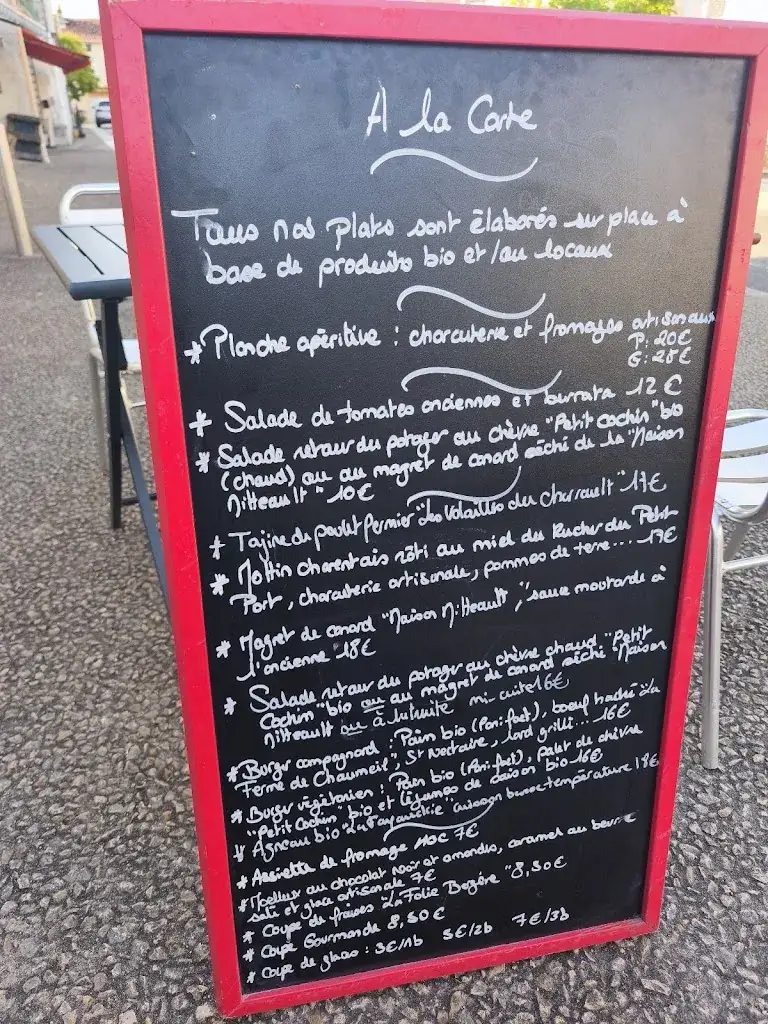 A la Carte
Tous nos plats sont élaborés sur place à
base de produits bio et/ou locaux
* Planche apéritive : charcuterie et fromages artisanaux
P: 20€
G: 28€
* Salade de tomates anciennes et burrata 12 €
* Salade retour du potager au chèvre "Petit Cochin" bio
(chaud) ou au magret de canard séché de la "Maison
Mitteault" 10€
* Tajine de poulet fermier "Les Volailles du Charrault" 17€
* Mottin charentais rôti au miel du Rucher du Petit
Port, charcuterie artisanale, pommes de terre... 17€
* Magret de canard "Maison Mitteault", sauce moutarde à
l'ancienne 18€
* Salade retour du potager au chèvre chaud "Petit
Cochin" bio ou au magret de canard séché "Maison
Mitteault ou à la truite mi-cuite 16€
* Burger campagnard : Pain bio (Pari:fect), boeuf haché "la
Ferme de Chaumeil", St Nectaire, lard grillé... 16€
* Burger végétarien : Pain bio (Pari:fect), Palet de chèvre
"Petit Cochin" bio et légumes de saison bio 16€
* Agneau bio cuisson basse température 18€
* Assiette de fromage MOC 7€
* Moelleux au chocolat noir et amandes, caramel au beurre
salé et glace artisanale 7€
* Coupe de fraises "La Folie Bergère" 8,50€
* Coupe Gourmande 8,50€
* Coupe de glaces : 3€/1b 5€/2b 7€/3b